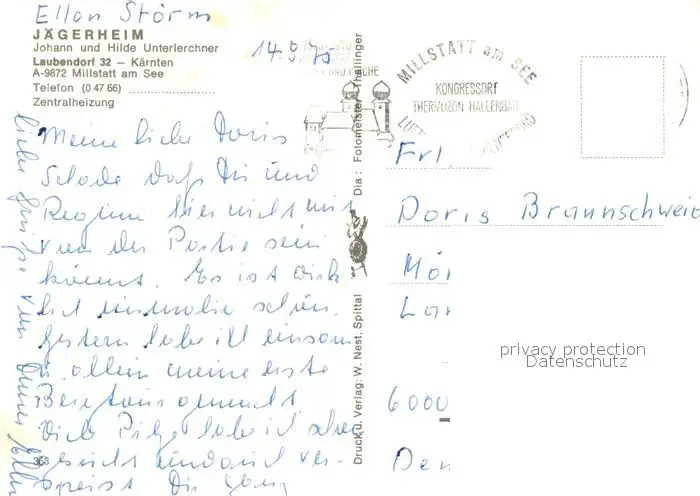 Ellen Störm
JÄGERHEIM
Johann und Hilde Unterlerchner
Laubendorf 32 – Kärnten
A-9872 Millstatt am See
Telefon (0 47 66)
Zentralheizung
14.9.75
MILLSTATT am SEE
KONGRESSORT
THERMOZON HALLENBAD
Meine liebe Doris
Schade daß Du und
Regina hier nicht mit
von der Partie sein
könnt. Es ist wirk
lich schön.
Gestern habe ich einsam
u. allein meine erste
Bergtour gemacht
Viele Pilze habe ich schon
gesucht und auch ver-
speist Du
liebe Grüße von Deiner
368
Druck u. Verlag: W. Nest, Spittal
Dia: Fotomeister Thallinger
Frl
Doris Braunschweig
Mör
6000
privacy protection
Datenschutz